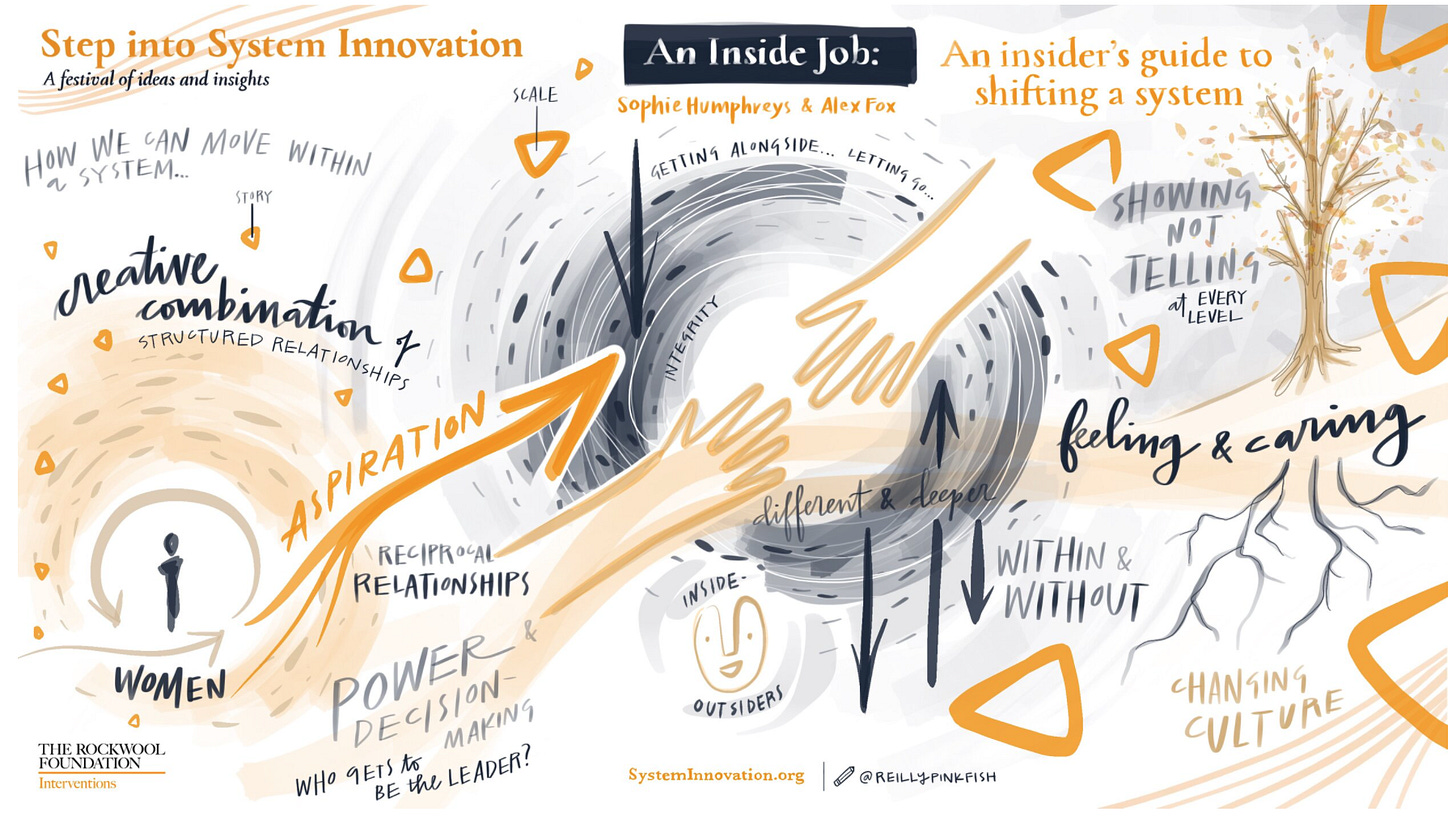 Step into System Innovation
A festival of ideas and insights
An Inside Job:
Sophie Humphreys & Alex Fox
An insider's guide to
shifting a system
HOW WE CAN MOVE WITHIN
a SYSTEM...
STORY
SCALE
creative
combination of
STRUCTURED RELATIONSHIPS
ASPIRATION
WOMEN
RECIPROCAL
RELATIONSHIPS
&
POWER
DECISION-
MAKING
WHO GETS to
BE the LEADER?
GETTING ALONGSIDE... LETTING GO...
INTEGRITY
different & deeper
INSIDE-
OUTSIDERS
WITHIN &
WITHOUT
SHOWING
NOT
TELLING
at EVERY
LEVEL
feeling & caring
CHANGING
CULTURE
THE ROCKWOOL
FOUNDATION
Interventions
SystemInnovation.org
@REILLYPINKFISH